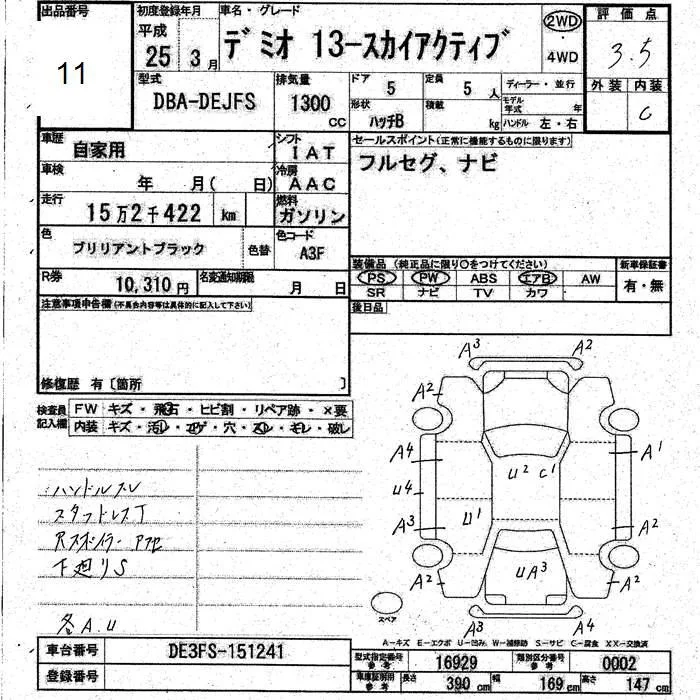 出品番号
11
初度登録年月
平成
25年 3月
車名・グレード
デミオ 13-スカイアクティブ
2WD
・
4WD
評価点
3.5
外装 内装
C
型式
DBA-DEJFS
排気量
1300
CC
ドア 5
定員 5 人
形状 ハッチB
積載 kg
ディーラー・並行
モデル年式 年
ハンドル 左・右
車歴 自家用
シフト IAT
セールスポイント(正常に機能するものに限ります)
フルセグ、ナビ
車検 年 月( 日)
冷房 AAC
走行 15万2千422 km
燃料 ガソリン
色 ブリリアントブラック 色替
色コード A3F
装備品 (純正品に限り○をつけてください)
新車保証書
PS PW ABS エアB AW
有・無
SR ナビ TV カワ
R券 10,310円
名変通知期限 月 日
後日品
注意事項申告欄(不具合内容等は具体的に記入して下さい)
修復歴 有〔箇所 〕
検査員記入欄
FW キズ・飛石・ヒビ割・リペア跡・×要
内装 キズ・汚レ・コゲ・穴・スレ・キレ・破レ
A3 A2
A2
A4 A1
U2 C1
U4
U1
A3 A2
UA3
A2 A2
スペア
A3 A4
ハンドルスレ
スタットレスT
Rスポイラー
下廻りS
各A.U
A-キズ E-エクボ U-凹み W-補修跡 S-サビ C-腐食 XX-交換済
車台番号 DE3FS-151241
登録番号
型式指定番号 参考 16929
類別区分番号 参考 0002
車庫証明用 参考 長さ 390 cm 幅 169 cm 高さ 147 cm